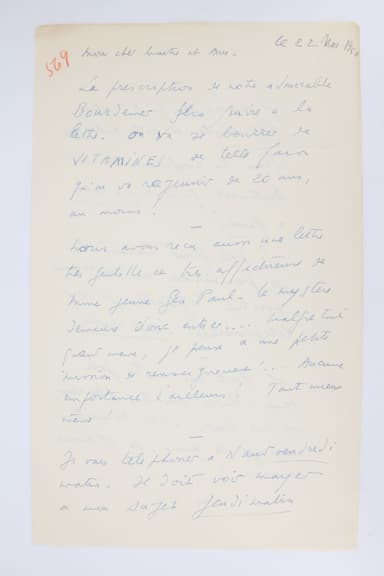 569
le 22 Mai
Mon cher Maître et Ami.
La prescription de notre admirable
Bourdeiner sera suivie à la
lettre. on va se bourrer de
VITAMINES de telle façon
qu'on va rajeunir de 20 ans,
au moins.
Nous avons reçu aussi une lettre
très gentille et très affectueuse de
Mme jeune Gen Paul. Le mystère
demeure donc entier.... malgré tout
quand même, je pense à une petite
mission de renseignements!.. Aucune
importance d'ailleurs! Tant mieux
même!
Je vais téléphoner à Naud vendredi
matin. Il doit voir
à mon sujet jeudi matin